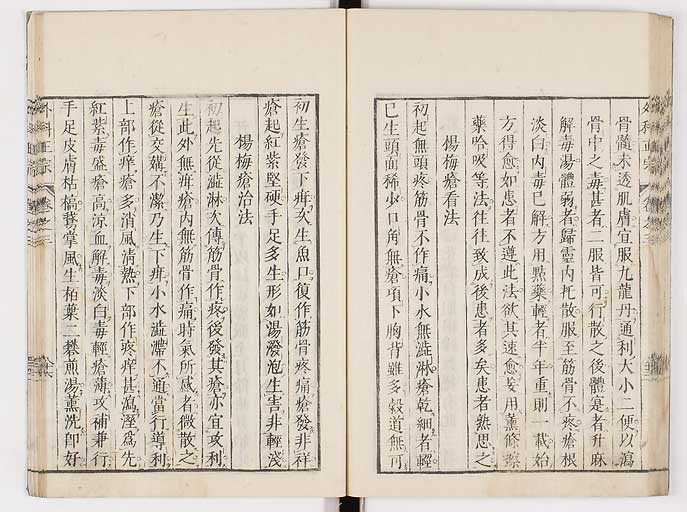 骨髓未透肌膚宜服九龍丹通利大小二便以瀉
骨中之毒甚者二服皆可行散之後體寔者升麻
解毒湯體弱者歸靈內托散服至筋骨不疼瘡根
淡白內毒已解方用點藥輕者半年重則一載始
方得愈如患者不遵此法欲其速愈妄用薰條擦
藥哈吸等法往往致成後患者多矣患者熟思之
楊梅瘡看法
初起無頭疼筋骨不作痛小水無澁淋瘡乾細者輕
已生頭面稀少口角無瘡項下胸背雖多穀道無可
初生瘡發下疳次生魚口復作筋骨疼痛瘡發非祥
瘡起紅紫堅硬手足多生形如湯潑泡生害非輕淺
楊梅瘡治法
初起先從澁淋次傳筋骨作疼後發其瘡亦宜攻利
生此外無疳瘡內無筋骨作痛時氣所感者微散之
瘡從交媾不潔乃生下疳小水澁滯不通當行導利
上部作痒瘡多消風清熱下部作疼痒甚瀉溼爲先
紅紫毒盛瘡高涼血解毒淡白毒輕瘡薄攻補兼行
手足皮膚枯槁鵝掌風生柏葉二礬煎湯薰洗卽好
外科正宗 卷之三